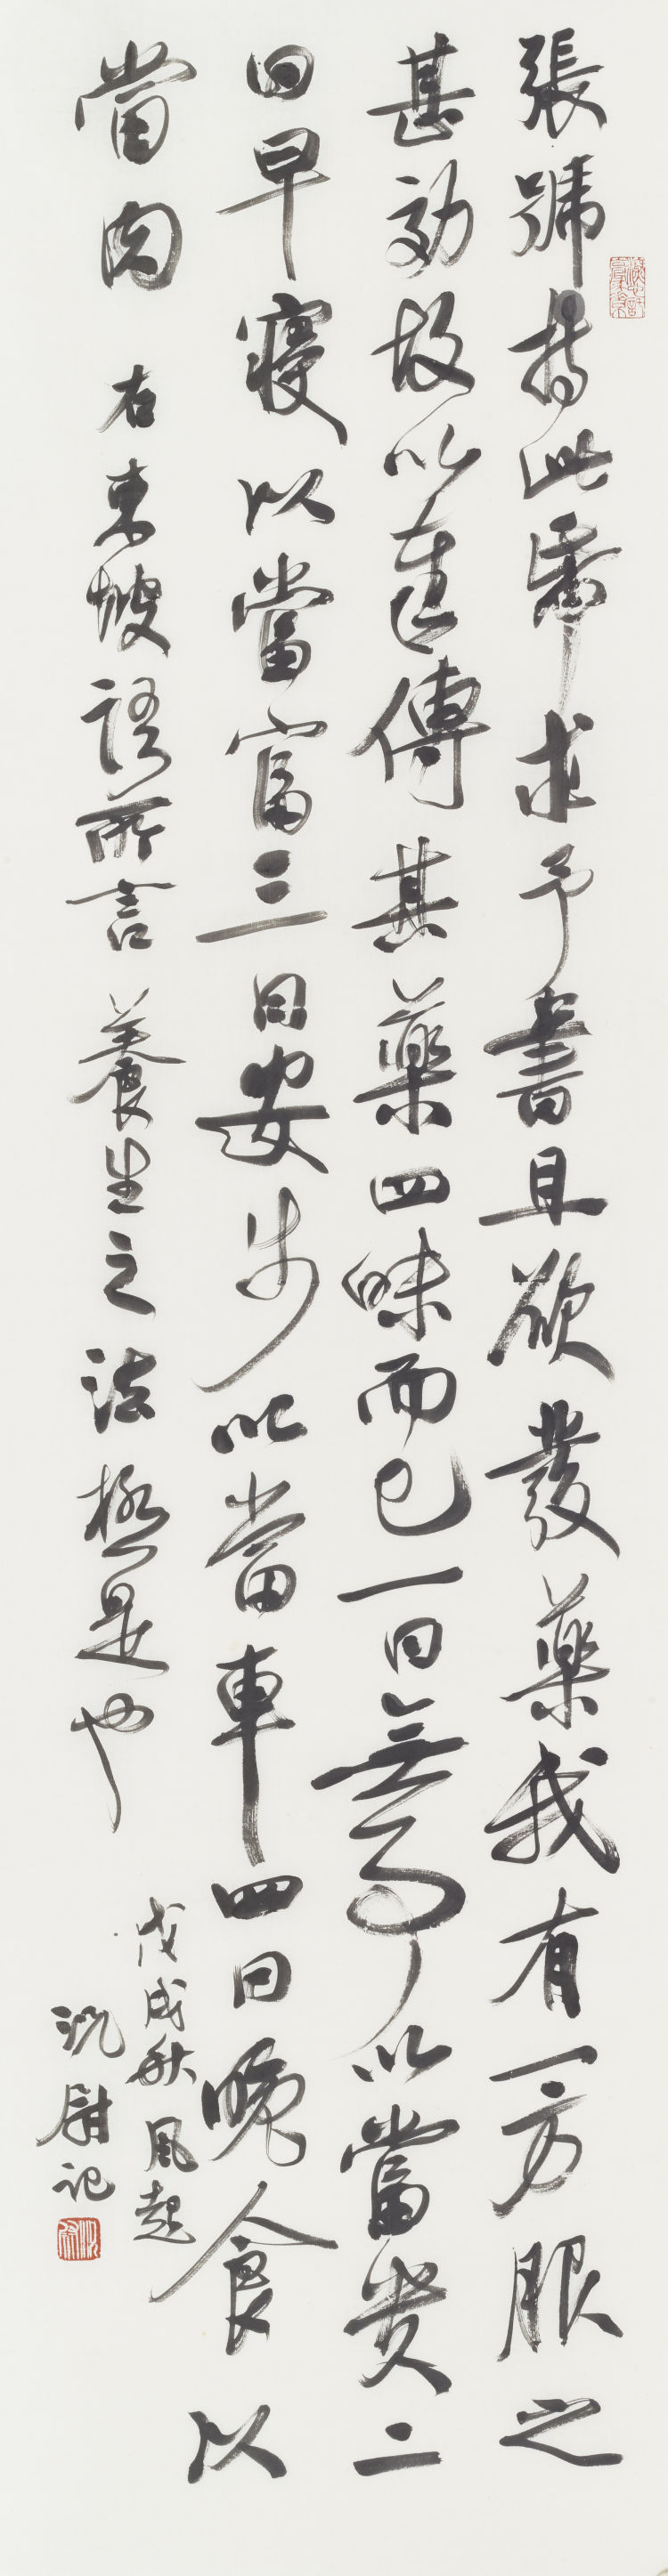 張號持此帋求予書且欲發藥我有一方服之
甚効故以傳其藥四味而已一曰無事以當貴二
曰早寢以當富三曰安步以當車四曰晚食以
當肉 右東坡語所言養生之法極是也
戊戌秋風起
沈尉記